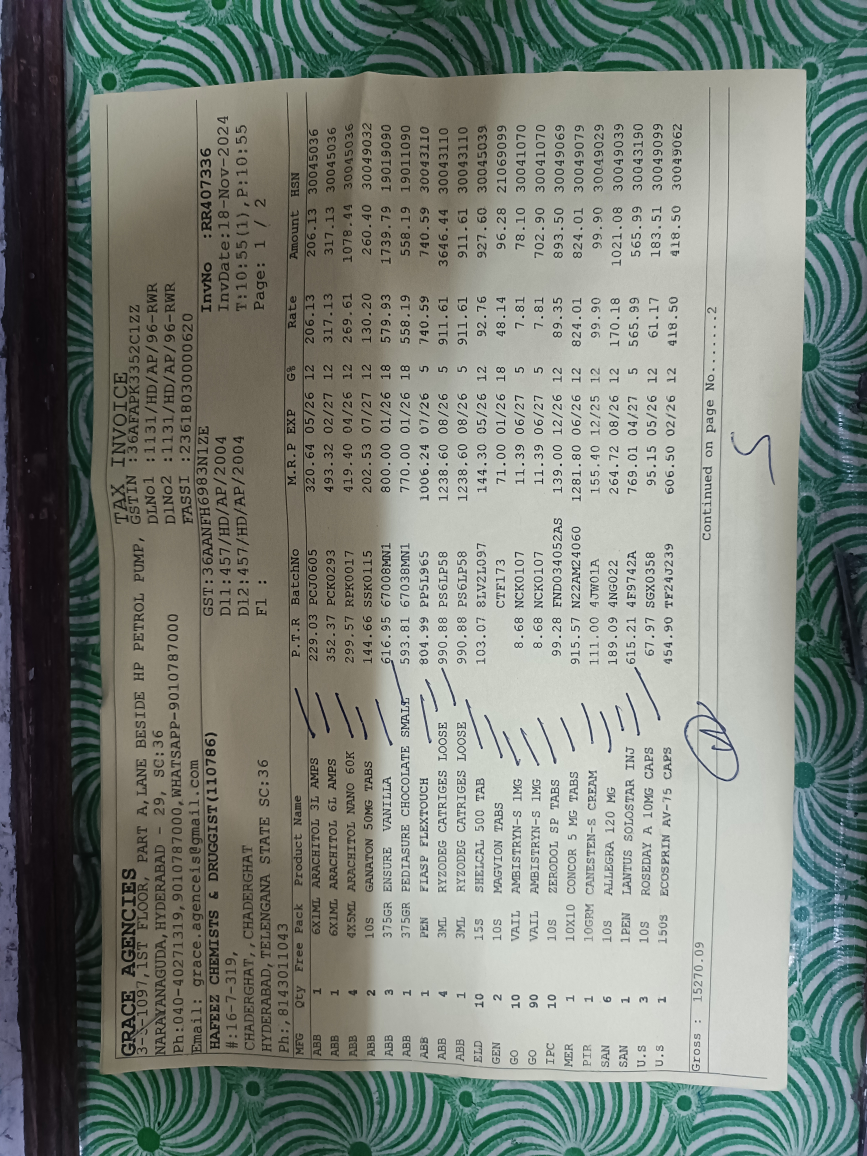 GRACE AGENCIES
TAX INVOICE
3-5-1097,1ST FLOOR, PART A,LANE BESIDE HP PETROL PUMP, GSTIN :36AFAPK3352C1ZZ
NARAYANAGUDA,HYDERABAD - 29, SC:36 DLNo1 :1131/HD/AP/96-RWR
Ph:040-40271319,9010787000,WHATSAPP-9010787000 DlNo2 :1131/HD/AP/96-RWR
Email: grace.agenceis@gmail.com FASSI :23618030000620
HAFEEZ CHEMISTS & DRUGGIST(110786) GST:36AANFH6983N1ZE InvNo :RR407336
#:16-7-319, Dl1:457/HD/AP/2004 InvDate:18-Nov-2024
CHADERGHAT, ,CHADERGHAT Dl2:457/HD/AP/2004 T:10:55(1),P:10:55
HYDERABAD,TELENGANA STATE SC:36 Fl : Page: 1 / 2
Ph:,8143011043
MFG Qty Free Pack Product Name P.T.R BatchNo M.R.P EXP G% Rate Amount HSN
ABB 1 6X1ML ARACHITOL 3L AMPS 229.03 PCJ0605 320.64 05/26 12 206.13 206.13 30045036
ABB 1 6X1ML ARACHITOL 6L AMPS 352.37 PCK0293 493.32 02/27 12 317.13 317.13 30045036
ABB 4 4X5ML ARACHITOL NANO 60K 299.57 RPK0017 419.40 04/26 12 269.61 1078.44 30045036
ABB 2 10S GANATON 50MG TABS 144.66 SSK0115 202.53 07/27 12 130.20 260.40 30049032
ABB 3 375GR ENSURE VANILLA 616.95 67008MN1 800.00 01/26 18 579.93 1739.79 19019090
ABB 1 375GR PEDIASURE CHOCOLATE SMALL 593.81 67038MN1 770.00 01/26 18 558.19 558.19 19011090
ABB 1 PEN FIASP FLEXTOUCH 804.99 PP5L965 1006.24 07/26 5 740.59 740.59 30043110
ABB 4 3ML RYZODEG CATRIGES LOOSE 990.88 PS6LP58 1238.60 08/26 5 911.61 3646.44 30043110
ABB 1 3ML RYZODEG CATRIGES LOOSE 990.88 PS6LP58 1238.60 08/26 5 911.61 911.61 30043110
ELD 10 15S SHELCAL 500 TAB 103.07 8LV2L097 144.30 05/26 12 92.76 927.60 30045039
GEN 2 10S MAGVION TABS CTF173 71.00 01/26 18 48.14 96.28 21069099
GO 10 VAIL AMBISTRYN-S 1MG 8.68 NCK0107 11.39 06/27 5 7.81 78.10 30041070
GO 90 VAIL AMBISTRYN-S 1MG 8.68 NCK0107 11.39 06/27 5 7.81 702.90 30041070
IPC 10 10S ZERODOL SP TABS 99.28 FND034052AS 139.00 12/26 12 89.35 893.50 30049069
MER 1 10X10 CONCOR 5 MG TABS 915.57 N22AM24060 1281.80 06/26 12 824.01 824.01 30049079
PIR 1 10GRM CANESTEN-S CREAM 111.00 4JW01A 155.40 12/25 12 99.90 99.90 30049029
SAN 6 10S ALLEGRA 120 MG 189.09 4NG022 264.72 08/26 12 170.18 1021.08 30049039
SAN 1 1PEN LANTUS SOLOSTAR INJ 615.21 4F9742A 769.01 04/27 5 565.99 565.99 30043190
U.S 3 10S ROSEDAY A 10MG CAPS 67.97 SGX0358 95.15 05/26 12 61.17 183.51 30049099
U.S 1 150S ECOSPRIN AV-75 CAPS 454.90 TF24U239 606.50 02/26 12 418.50 418.50 30049062
Gross : 15270.09 Continued on page No.......2